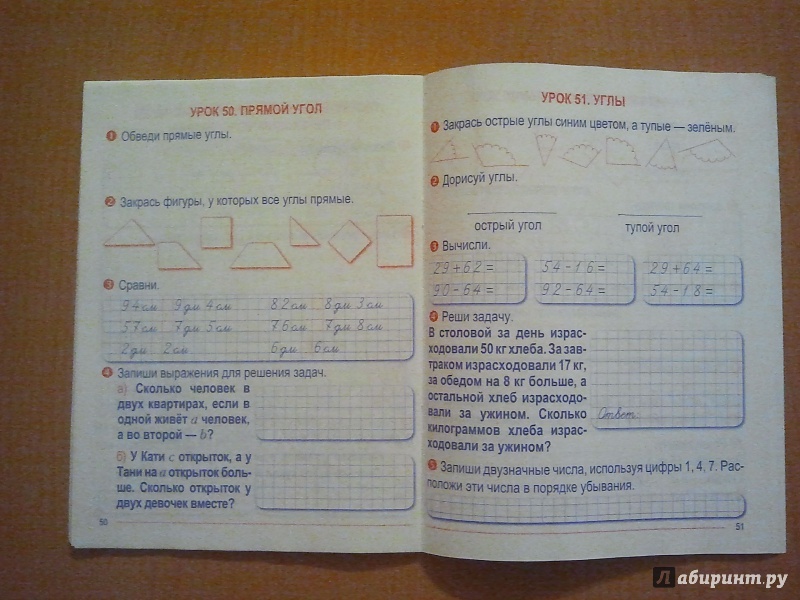 УРОК 50. ПРЯМОЙ УГОЛ
1 Обведи прямые углы.
2 Закрась фигуры, у которых все углы прямые.
3 Сравни.
94 см 9 дм 4 см 82 см 8 дм 3 см
57 см 7 дм 5 см 76 см 7 дм 8 см
2 дм 2 см 6 дм 6 см
4 Запиши выражения для решения задач.
а) Сколько человек в
двух квартирах, если в
одной живёт a человек,
а во второй — b?
б) У Кати c открыток, а у
Тани на a открыток боль-
ше. Сколько открыток у
двух девочек вместе?
50
УРОК 51. УГЛЫ
1 Закрась острые углы синим цветом, а тупые — зелёным.
2 Дорисуй углы.
острый угол тупой угол
3 Вычисли.
29+62= 54-16= 29+64=
90-64= 92-64= 54-18=
4 Реши задачу.
В столовой за день израс-
ходовали 50 кг хлеба. За зав-
траком израсходовали 17 кг,
за обедом на 8 кг больше, а
остальной хлеб израсходо-
вали за ужином. Сколько
килограммов хлеба израс-
ходовали за ужином?
Ответ:
5 Запиши двузначные числа, используя цифры 1, 4, 7. Рас-
положи эти числа в порядке убывания.
51
Лабиринт.ру